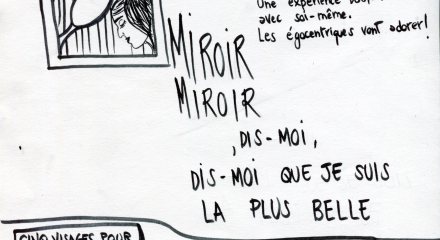 Une expérience
avec soi-même.
Les égocentriques vont adorer!
MIROIR
MIROIR
, DIS-MOI,
DIS-MOI QUE JE SUIS
LA PLUS BELLE
CINQ VISAGES POUR